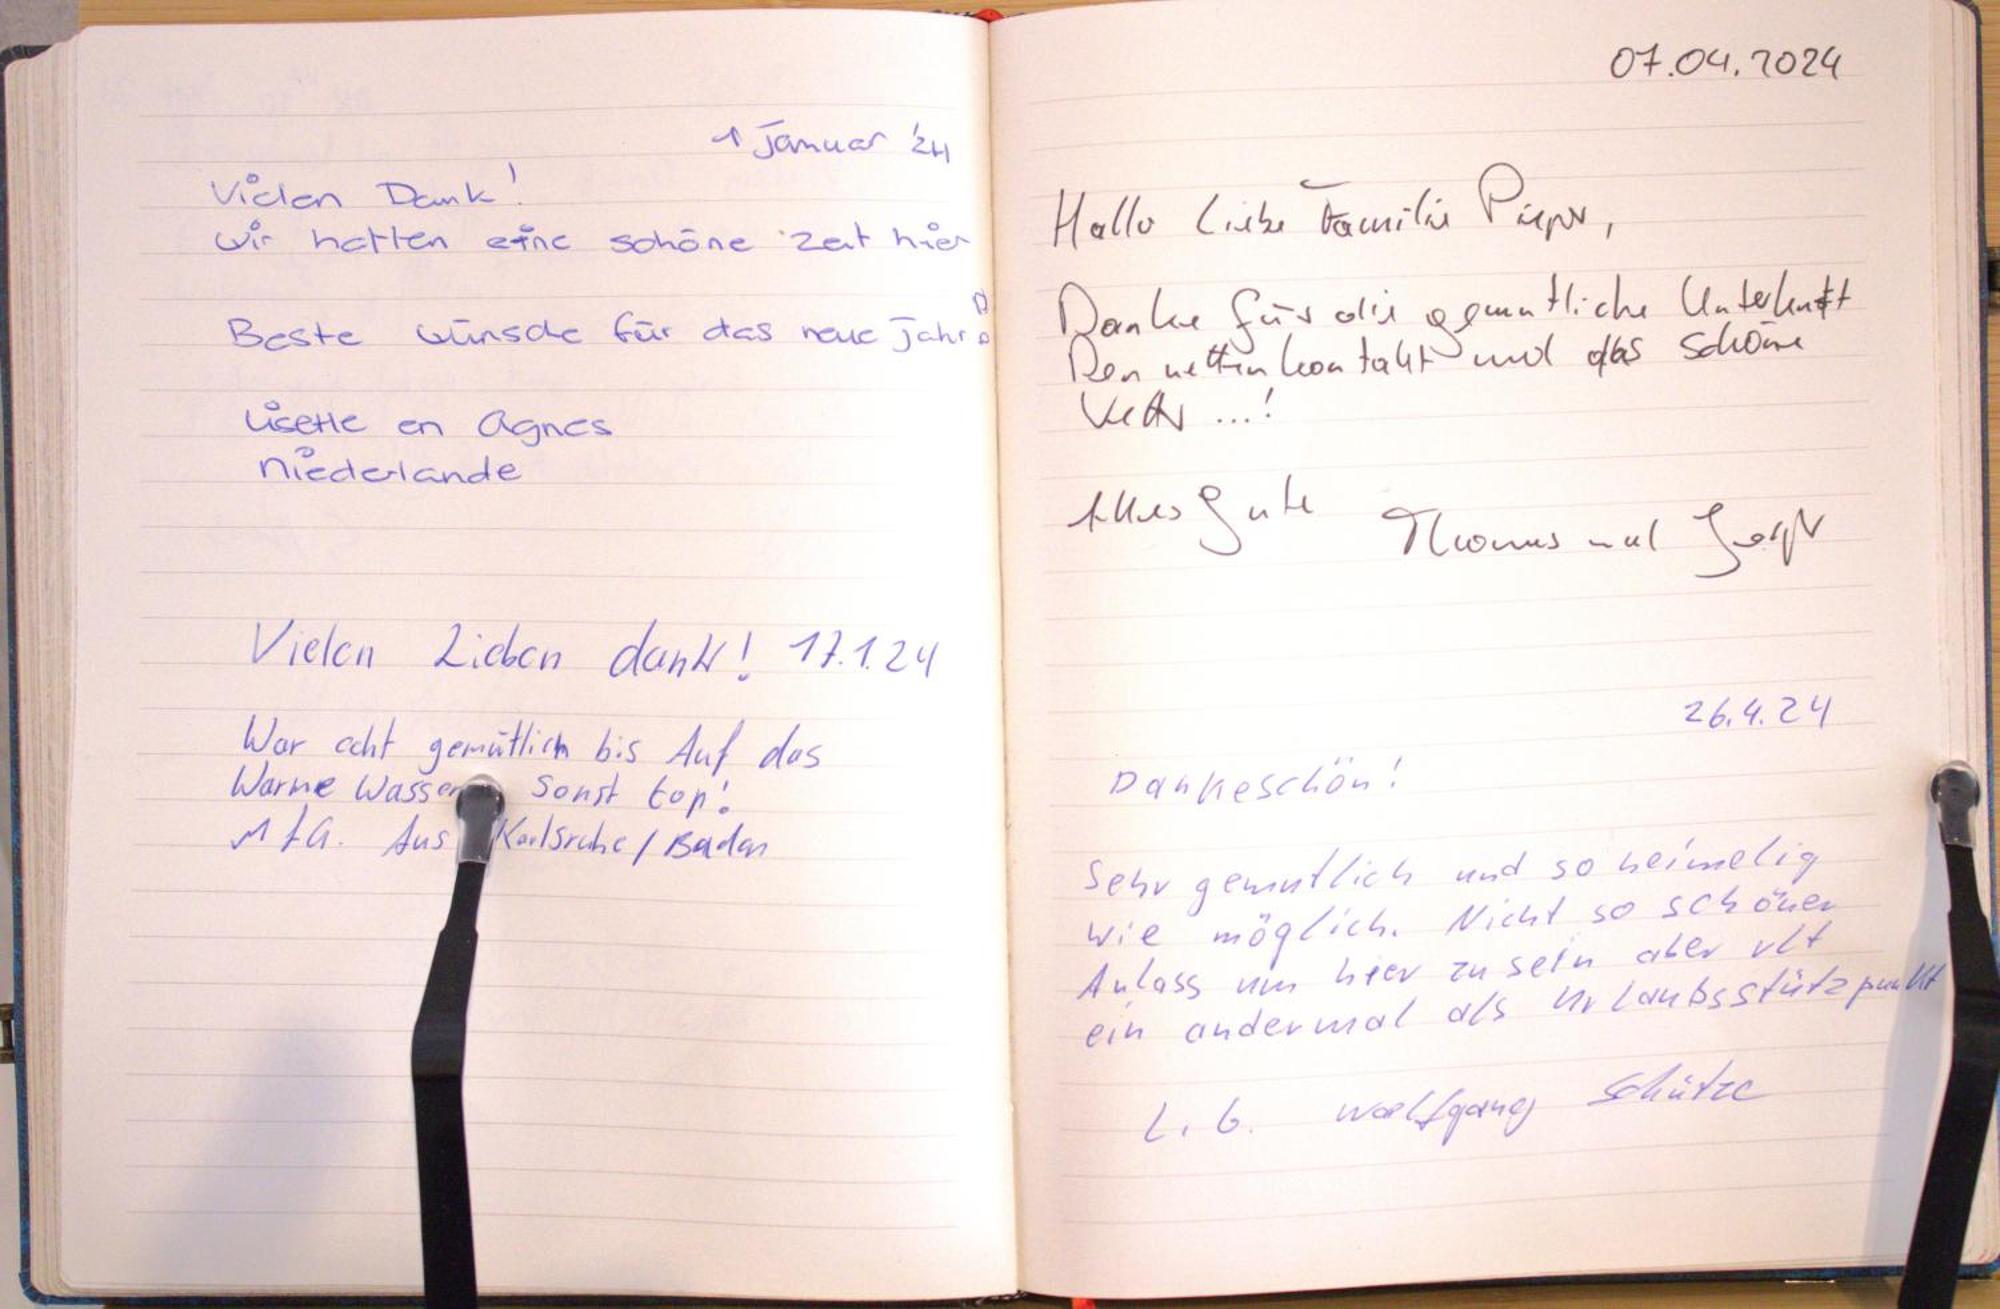 1 Januar '24
Vielen Dank!
Wir hatten eine schöne Zeit hier
Beste wünsche für das neue Jahr!
Lisette en Agnes
Niederlande
Vielen Lieben dank! 17.1.24
War echt gemütlich bis Auf das
Warme Wasser Sonst top!
MfG. Aus Karlsruhe/Baden
07.04.2024
Hallo Liebe Familie Pieper,
Danke für die gemütliche Unterkunft
Den netten Kontakt und das schöne
...!
Alles Gute Thomas und
26.4.24
Dankeschön!
Sehr gemütlich und so heimelig
wie möglich. Nicht so schöner
Anlass um hier zu sein aber vlt
ein andermal als Urlaubsstützpunkt
L. G. Wolfgang Schütze